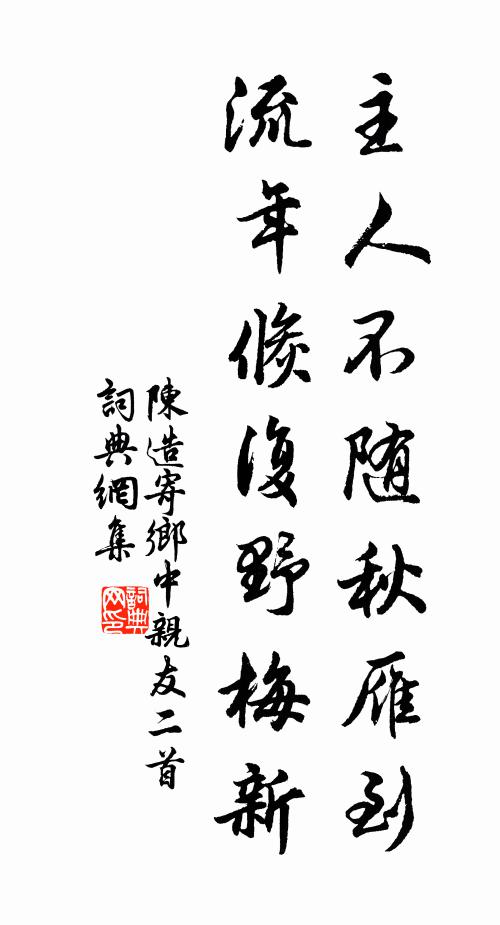 主人不随秋雁到
流年倏復野梅新
陳造寄鄉中親友二首
詞典網集
詞典网印